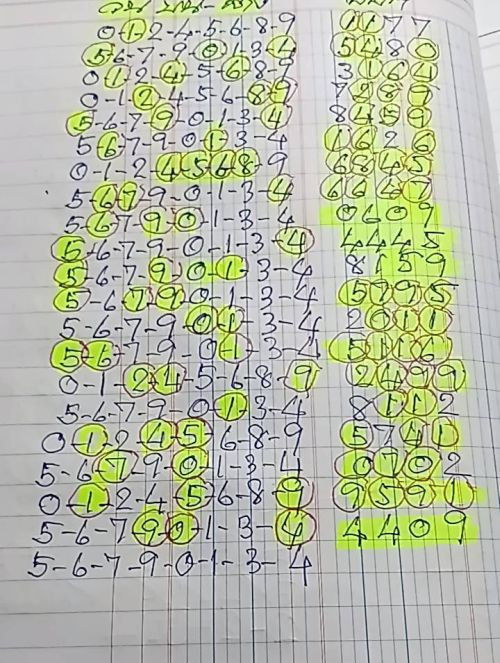 0-1-2-4-5-6-8-9 1177
56-7-9-0-1-3-4 5480
0-1-2-4-5-6-8-9 3164
0-1-2-4-5-6-8-9 7289
5-6-7-9-0-1-3-4 8459
5-6-7-9-0-1-3-4 1626
0-1-2-4-5-6-8-9 6845
5-6-7-9-0-1-3-4 6647
5-6-7-9-0-1-3-4 0609
5-6-7-9-0-1-3-4 4445
5-6-7-9-0-1-3-4 8159
5-6-7-9-0-1-3-4 5795
5-6-7-9-0-1-3-4 2011
5-6-7-9-0-1-3-4 5116
0-1-2-4-5-6-8-9 2499
5-6-7-9-0-1-3-4 8112
0-1-2-4-5-6-8-9 5741
5-6-7-9-0-1-3-4 0702
0-1-2-4-5-6-8-9 9591
5-6-7-9-0-1-3-4 4409
5-6-7-9-0-1-3-4